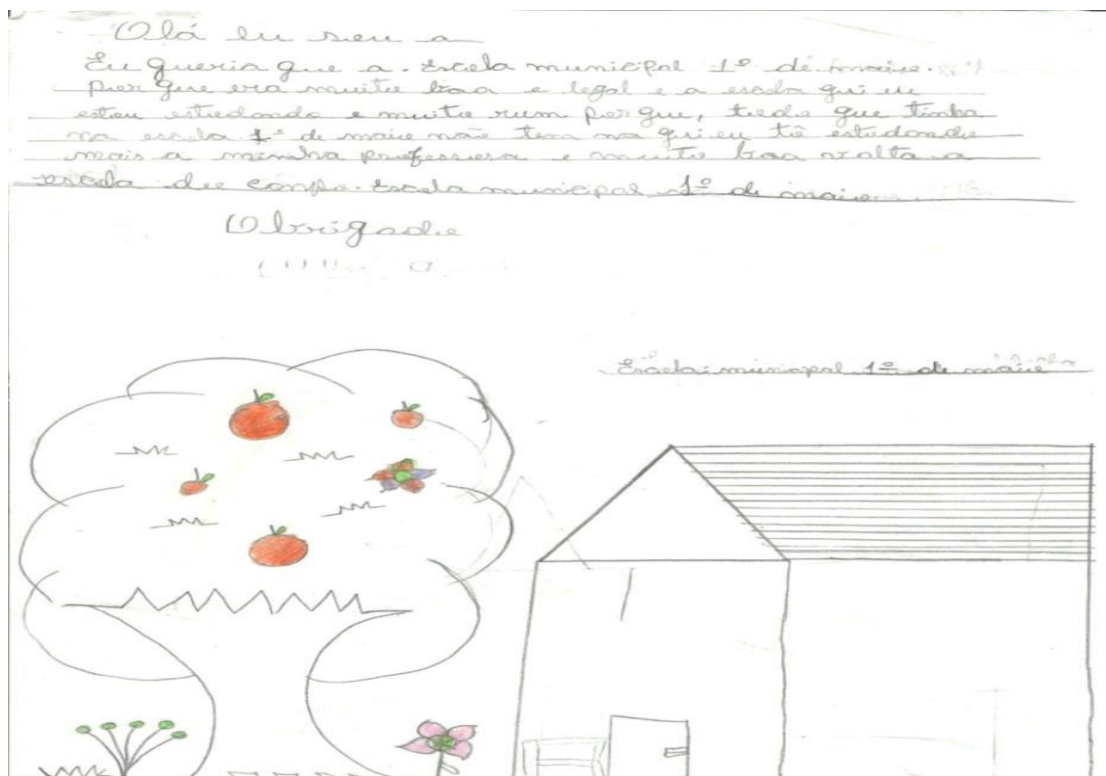 Olá eu sou a
Eu queria que a. Escola municipal 1º de maio.
porque era muito boa e legal e a escola qui eu
estou estudando e muito rum porque, tudo que tinha
na escola 1º de maio não tem na qui eu tô estudando
mais a minha professora e muito boa volta a
escola do campo. Escola municipal 1º de maio
Obrigado
Escola municipal 1º de maio